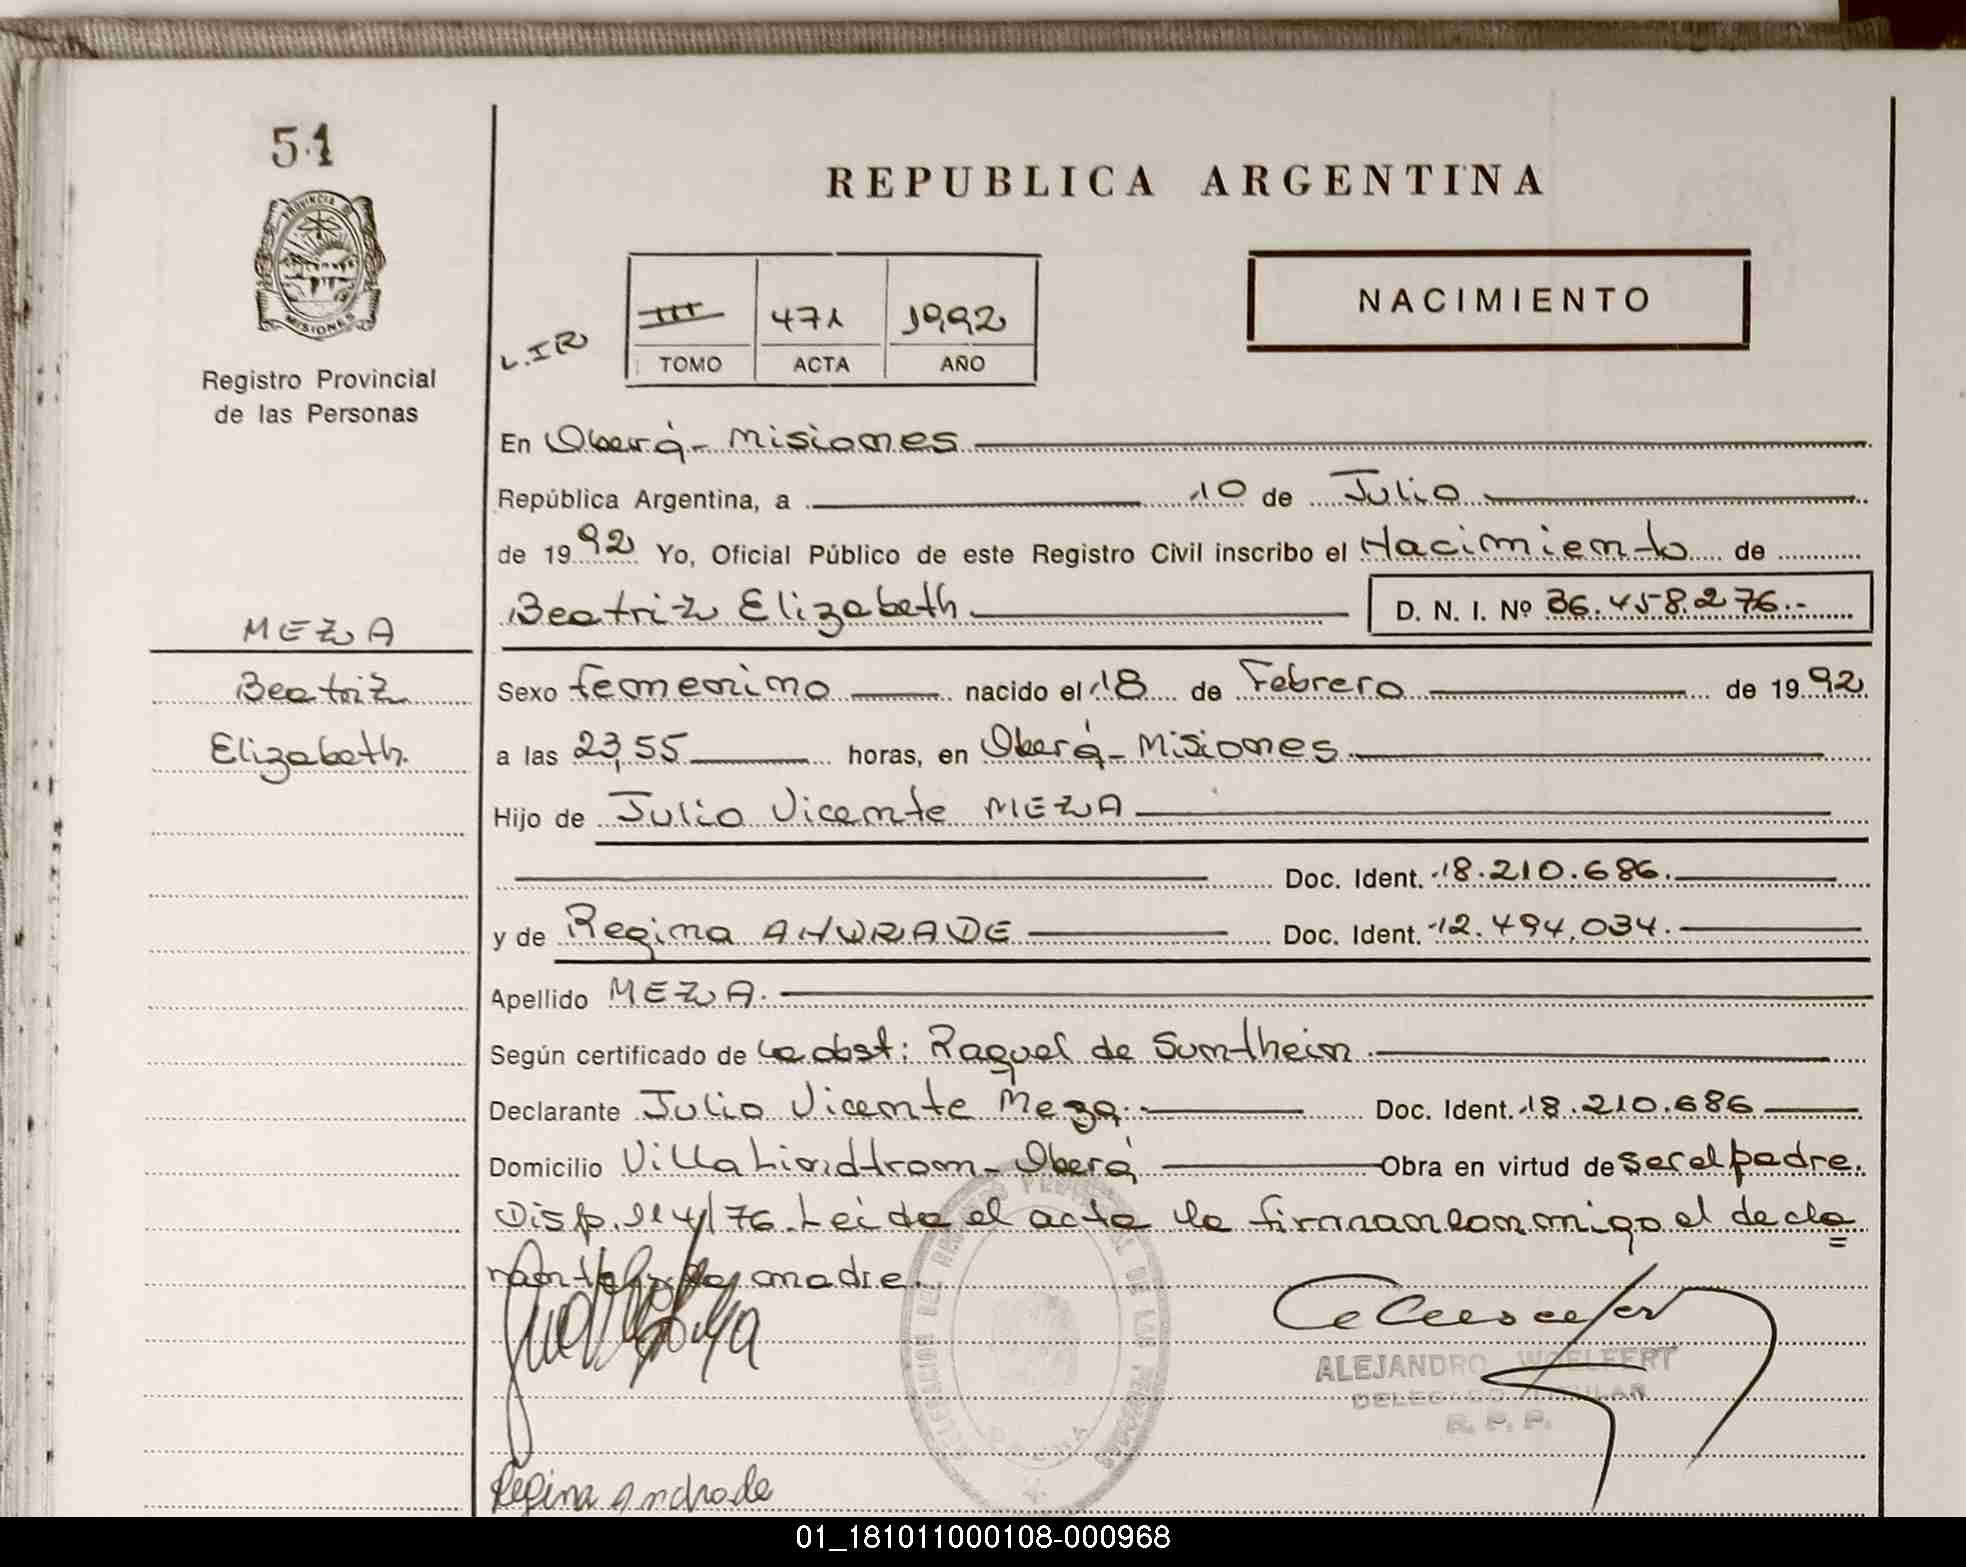 51
PROVINCIA DE
MISIONES
Registro Provincial
de las Personas
MEZA
Beatriz
Elizabeth.
REPUBLICA ARGENTINA
L.IR
III 471 1992
TOMO ACTA AÑO
NACIMIENTO
En Oberá - Misiones
República Argentina, a 10 de Julio
de 1992 Yo, Oficial Público de este Registro Civil inscribo el Nacimiento de
Beatriz Elizabeth D. N. I. Nº 36.458.276.-
Sexo femenino nacido el 18 de Febrero de 1992
a las 23,55 horas, en Oberá - Misiones
Hijo de Julio Vicente MEZA
Doc. Ident. 18.210.686.
y de Regina ANDRADE Doc. Ident. 12.494.034.
Apellido MEZA.
Según certificado de la obst: Raquel de Suntheim
Declarante Julio Vicente Meza. Doc. Ident. 18.210.686
Domicilio Villa Lindtrom - Oberá Obra en virtud de ser el padre.
Disp. 114/76. Leida el acta la firman conmigo el decla=
rante y la madre.
ALEJANDRO WOELFERT
DELEGADO TITULAR
R. P. P.
Regina Andrade
01_181011000108-000968